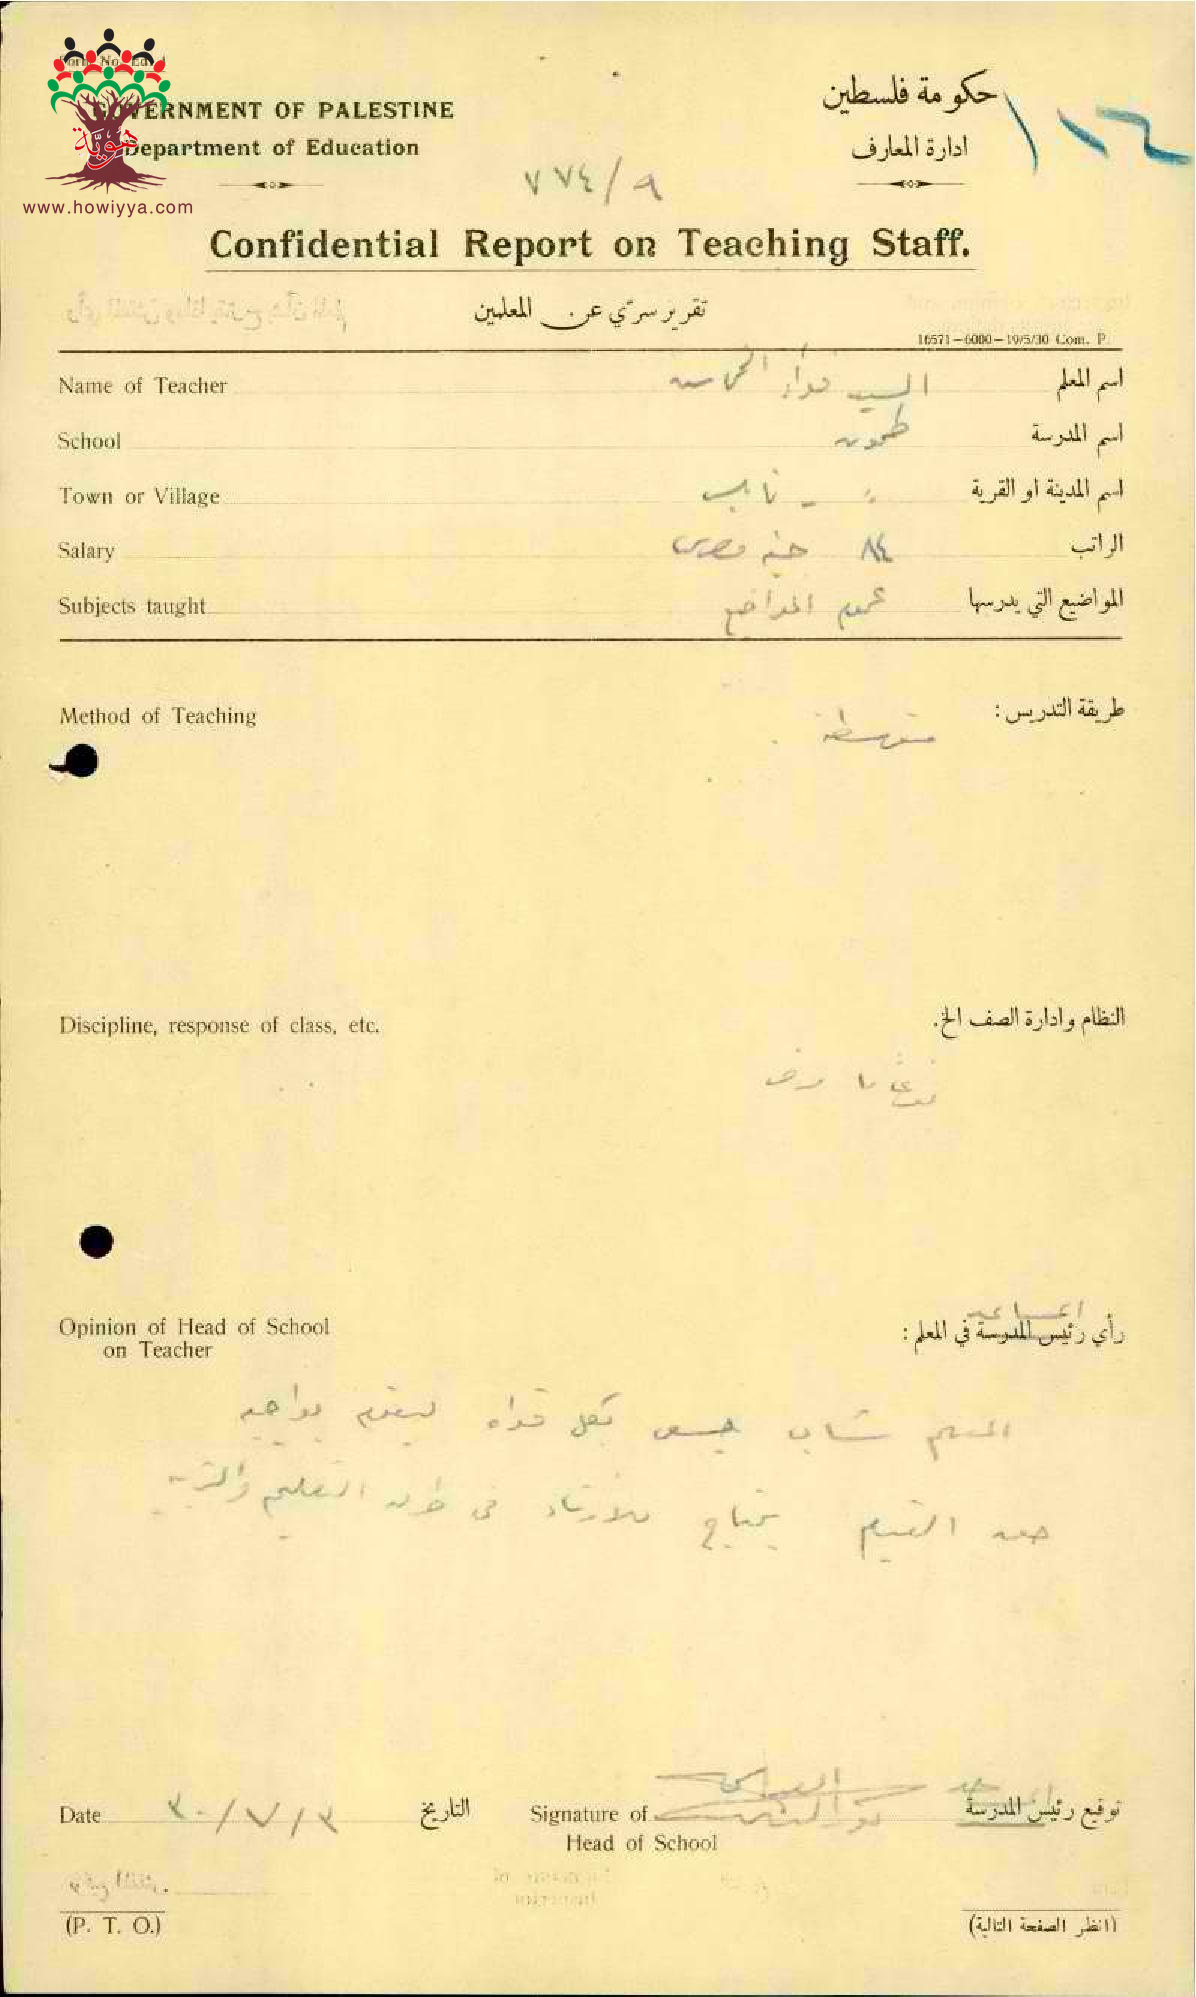 Form No. Ed.
GOVERNMENT OF PALESTINE
Department of Education
هويّة
www.howiyya.com
حكومة فلسطين
ادارة المعارف
١١٦
٧٧٤/٩
Confidential Report on Teaching Staff.
تقرير سرّي عن المعلمين
16571—6000—19/5/30 Com. P.
Name of Teacher السيد فؤاد اسم المعلم
School طمون اسم المدرسة
Town or Village نابلس اسم المدينة او القرية
Salary ٨٤ جنيه مصري الراتب
Subjects taught عموم المواضيع المواضيع التي يدرسها
Method of Teaching طريقة التدريس :
متوسطة
Discipline, response of class, etc. النظام وادارة الصف الخ.
نوعاً ما
المساعد
Opinion of Head of School رأي رئيس المدرسة في المعلم :
on Teacher
المعلم شاب يسعى بكل قواه ليقوم بواجبه
حق القيام يحتاج للارشاد في طرق التعليم والتربية
Date ٣٠/٧/٣ التاريخ Signature of توقيع رئيس المدرسة
Head of School
(P. T. O.) (انظر الصفحة التالية)